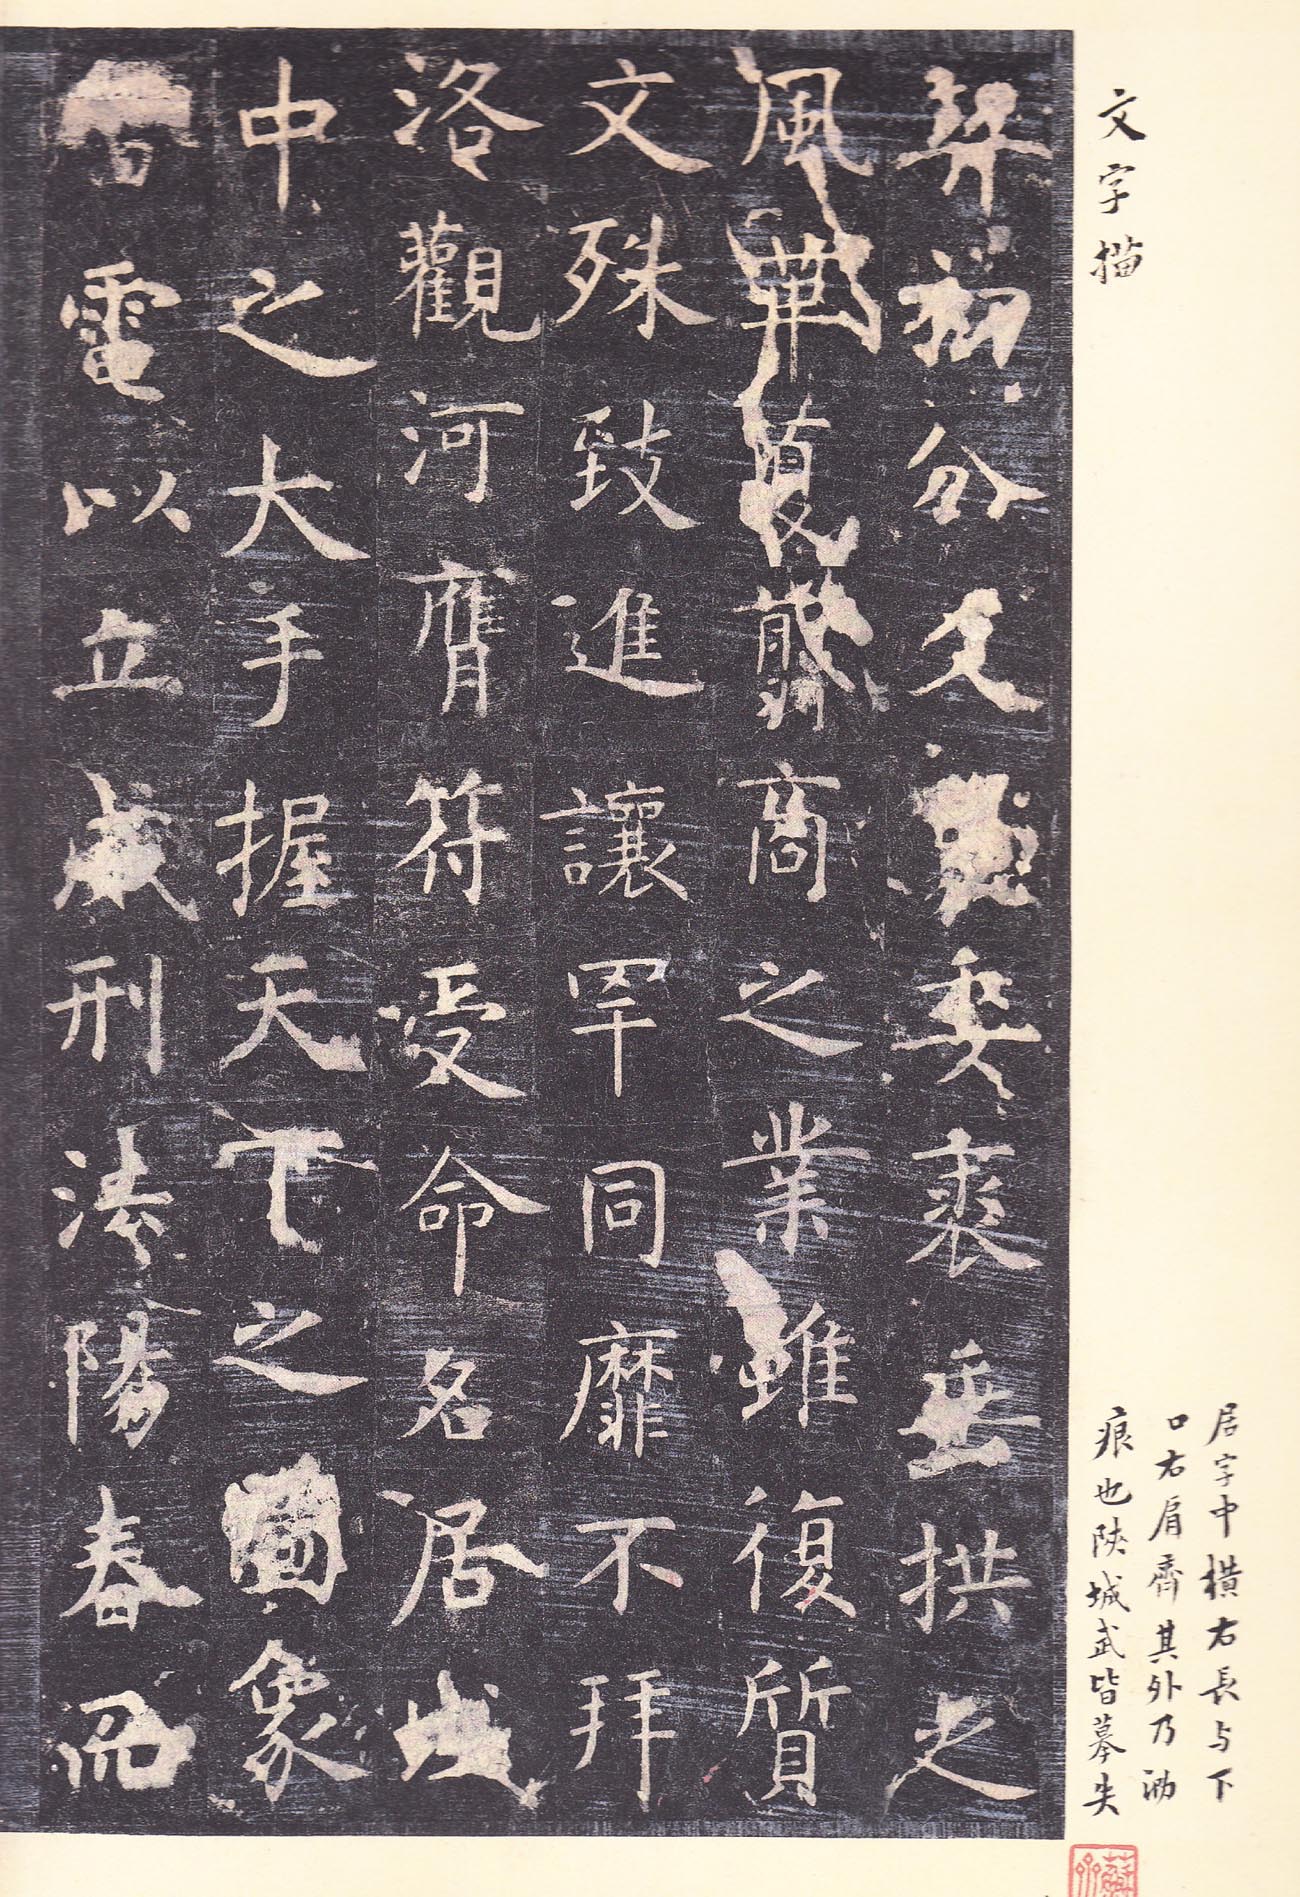 文字描
居字中橫右長与下
口右肩齊其外乃泐
痕也陝城武皆摹失
契初分爻象委裘垂拱之
風革夏翦商之業雖復質
文殊致進讓罕同靡不拜
洛觀河膺符受命名居域
中之大手握天下之圖象
雷電以立威刑法陽春而